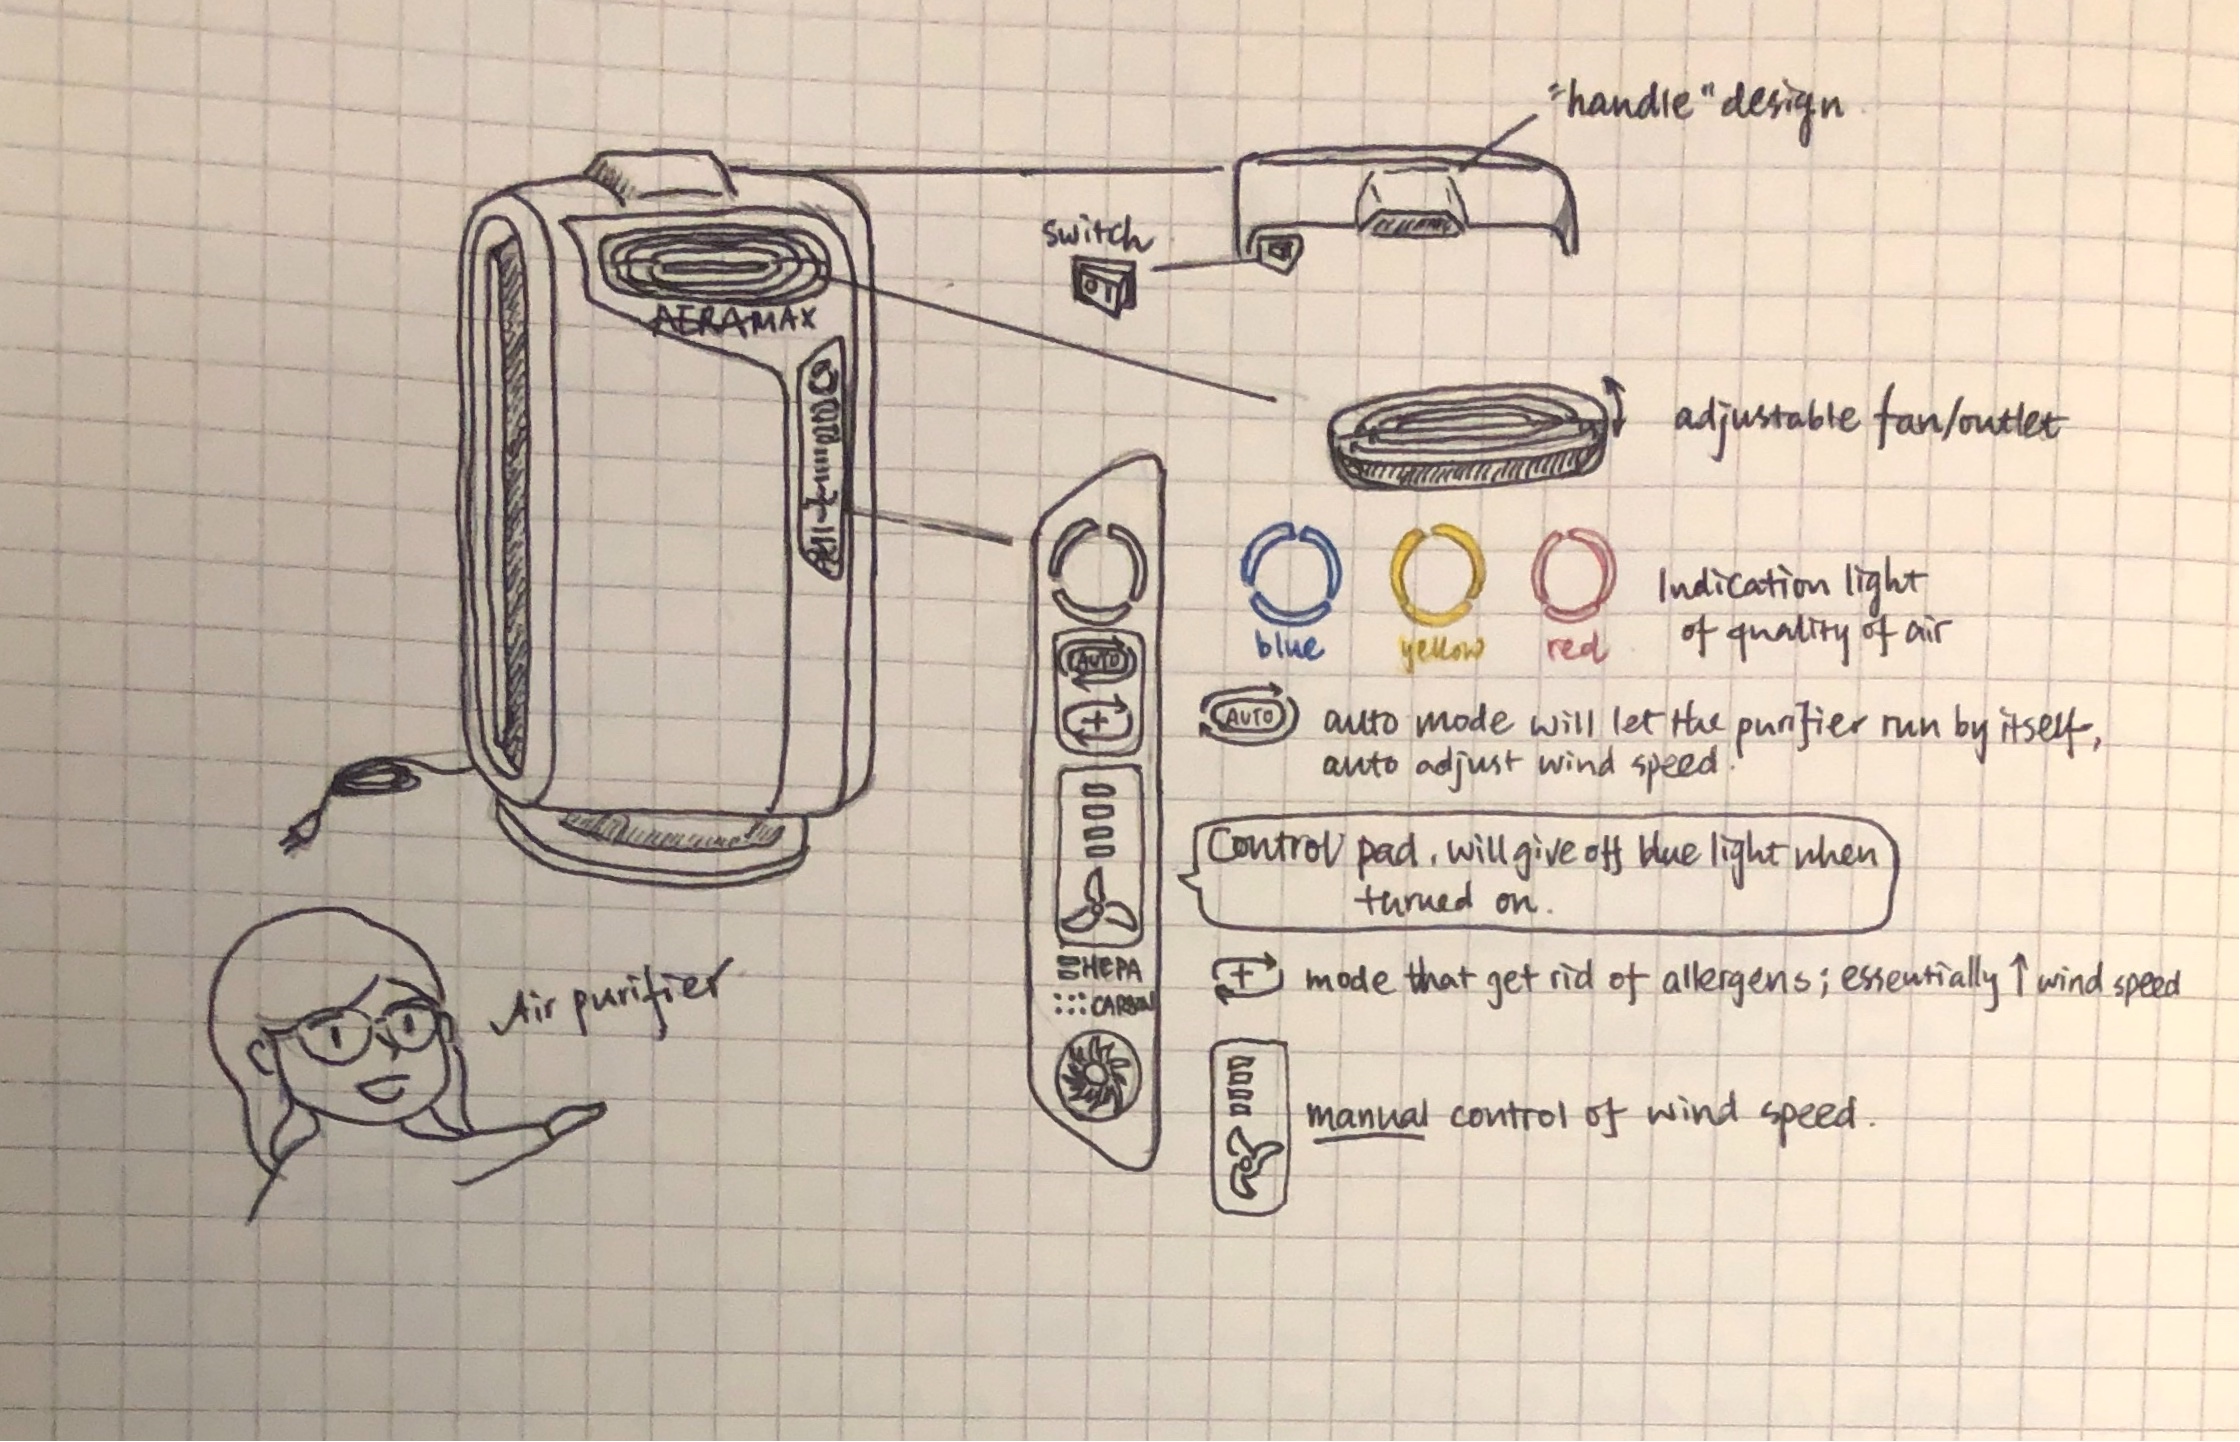 "handle" design
switch
OI
AERAMAX
adjustable fan/outlet
blue
yellow
red
Indication light
of quality of air
AUTO
AUTO
auto mode will let the purifier run by itself,
auto adjust wind speed.
Control pad, will give off blue light when
turned on.
HEPA
CARBON
+ mode that get rid of allergens; essentially ↑ wind speed
Air purifier
manual control of wind speed.